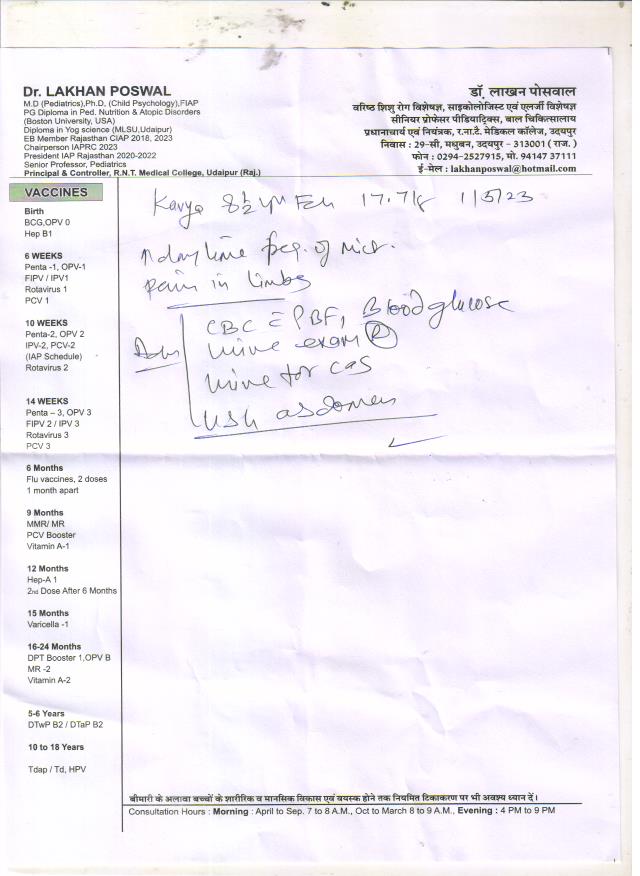 Dr. LAKHAN POSWAL
M.D (Pediatrics),Ph.D, (Child Psychology),FIAP
PG Diploma in Ped. Nutrition & Atopic Disorders
(Boston University, USA)
Diploma in Yog science (MLSU,Udaipur)
EB Member Rajasthan CIAP 2018, 2023
Chairperson IAPRC 2023
President IAP Rajasthan 2020-2022
Senior Professor, Pediatrics
Principal & Controller, R.N.T. Medical College, Udaipur (Raj.)
डॉ. लाखन पोसवाल
वरिष्ठ शिशु रोग विशेषज्ञ, साइकोलोजिस्ट एवं एलर्जी विशेषज्ञ
सीनियर प्रोफेसर पीडियाट्रिक्स, बाल चिकित्सालय
प्रधानाचार्य एवं नियंत्रक, र.ना.टे. मेडिकल कॉलेज, उदयपुर
निवास : 29-सी, मधुबन, उदयपुर - 313001 ( राज. )
फोन : 0294-2527915, मो. 94147 37111
ई-मेल : lakhanposwal@hotmail.com
VACCINES
Birth
BCG,OPV 0
Hep B1
6 WEEKS
Penta -1, OPV-1
FIPV / IPV1
Rotavirus 1
PCV 1
10 WEEKS
Penta-2, OPV 2
IPV-2, PCV-2
(IAP Schedule)
Rotavirus 2
14 WEEKS
Penta – 3, OPV 3
FIPV 2 / IPV 3
Rotavirus 3
PCV 3
6 Months
Flu vaccines, 2 doses
1 month apart
9 Months
MMR/ MR
PCV Booster
Vitamin A-1
12 Months
Hep-A 1
2nd Dose After 6 Months
15 Months
Varicella -1
16-24 Months
DPT Booster 1,OPV B
MR -2
Vitamin A-2
5-6 Years
DTwP B2 / DTaP B2
10 to 18 Years
Tdap / Td, HPV
Kavya 8½ yr 17.7 1/5/23
↑ daytime freq. of mict.
pain in limbs
CBC c̄ PBF, Blood glucose
Adv urine exam (R)
urine for
USG abdomen
बीमारी के अलावा बच्चों के शारीरिक व मानसिक विकास एवं वयस्क होने तक नियमित टिकाकरण पर भी अवश्य ध्यान दें।
Consultation Hours : Morning : April to Sep. 7 to 8 A.M., Oct to March 8 to 9 A.M., Evening : 4 PM to 9 PM